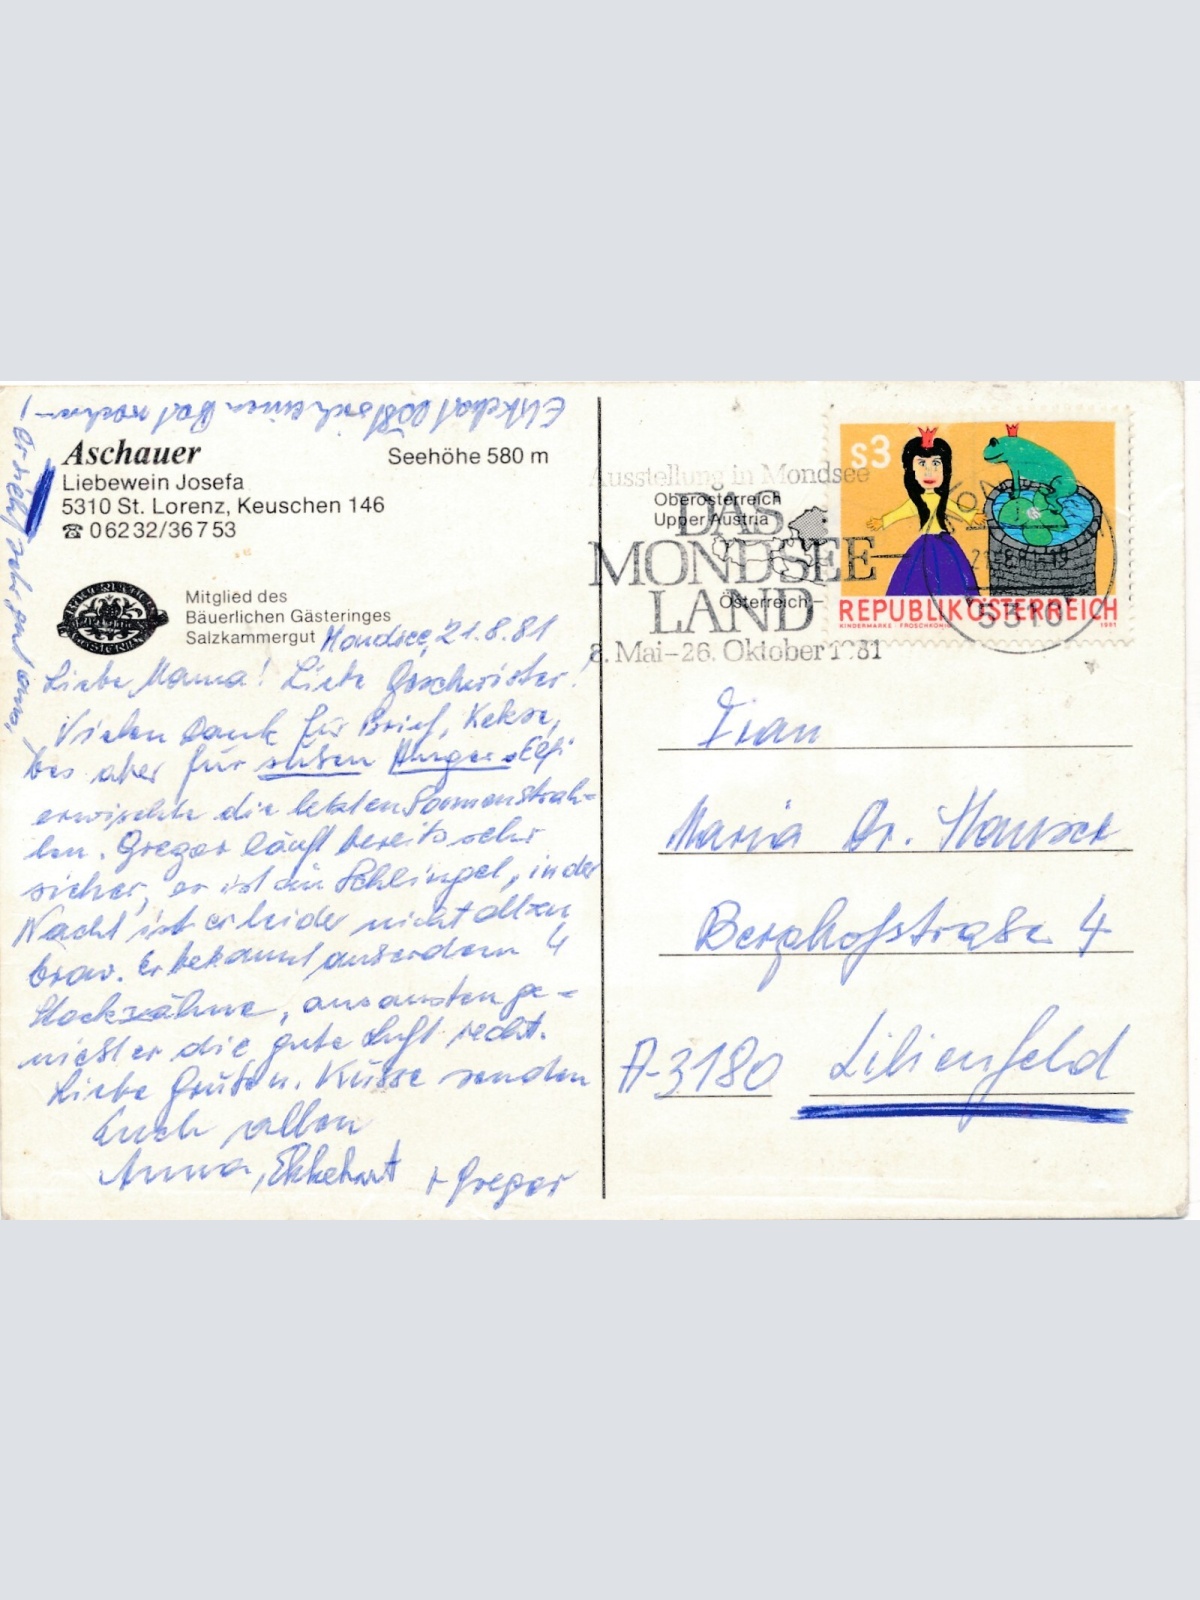 Ekkehart läßt sich einen Bart wachsen!
er steht sehr gut an,
Aschauer
Seehöhe 580 m
Liebewein Josefa
5310 St. Lorenz, Keuschen 146
☎ 06232/36753
Mitglied des
Bäuerlichen Gästeringes
Salzkammergut
Mondsee, 21.8.81
Liebe Mama! Liebe Geschwister!
Vielen Dank für Brief, Kekse,
bes aber für Elfi
erwischte die letzten Sonnenstrah-
len. Gregor läuft bereits sehr
sicher, er ist ein Schlingel, in der
Nacht ist er leider nicht allzu
brav. Er bekommt ausserdem 4
Stockzähne, ansonsten ge-
nießt er die gute Luft recht.
Liebe Grüße u. Küsse senden
Euch allen
Anna, Ekkehart + Gregor
Ausstellung in Mondsee
DAS
MONDSEE
LAND
8. Mai-26. Oktober 1981
Oberösterreich
Upper Austria
Österreich
S3
REPUBLIK ÖSTERREICH
KINDERMARKE - FROSCHKÖNIG
1981
5310
Frau
Maria Dr. Hauser
Berghofstraße 4
A-3180 Lilienfeld